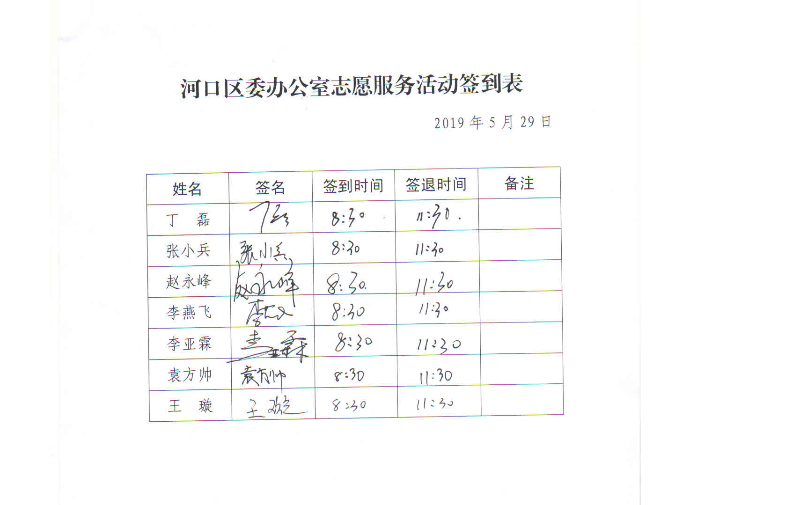 河口区委办公室志愿服务活动签到表
2019 年 5 月 29 日
姓名 签名 签到时间 签退时间 备注
丁 磊 丁磊 8:30 11:30.
张小兵 张小兵 8:30 11:30
赵永峰 赵永峰 8:30. 11:30
李燕飞 8:30 11:30
李亚霖 8:30 11:30
袁方帅 袁方帅 8:30 11:30
王 璇 王璇 8:30 11:30